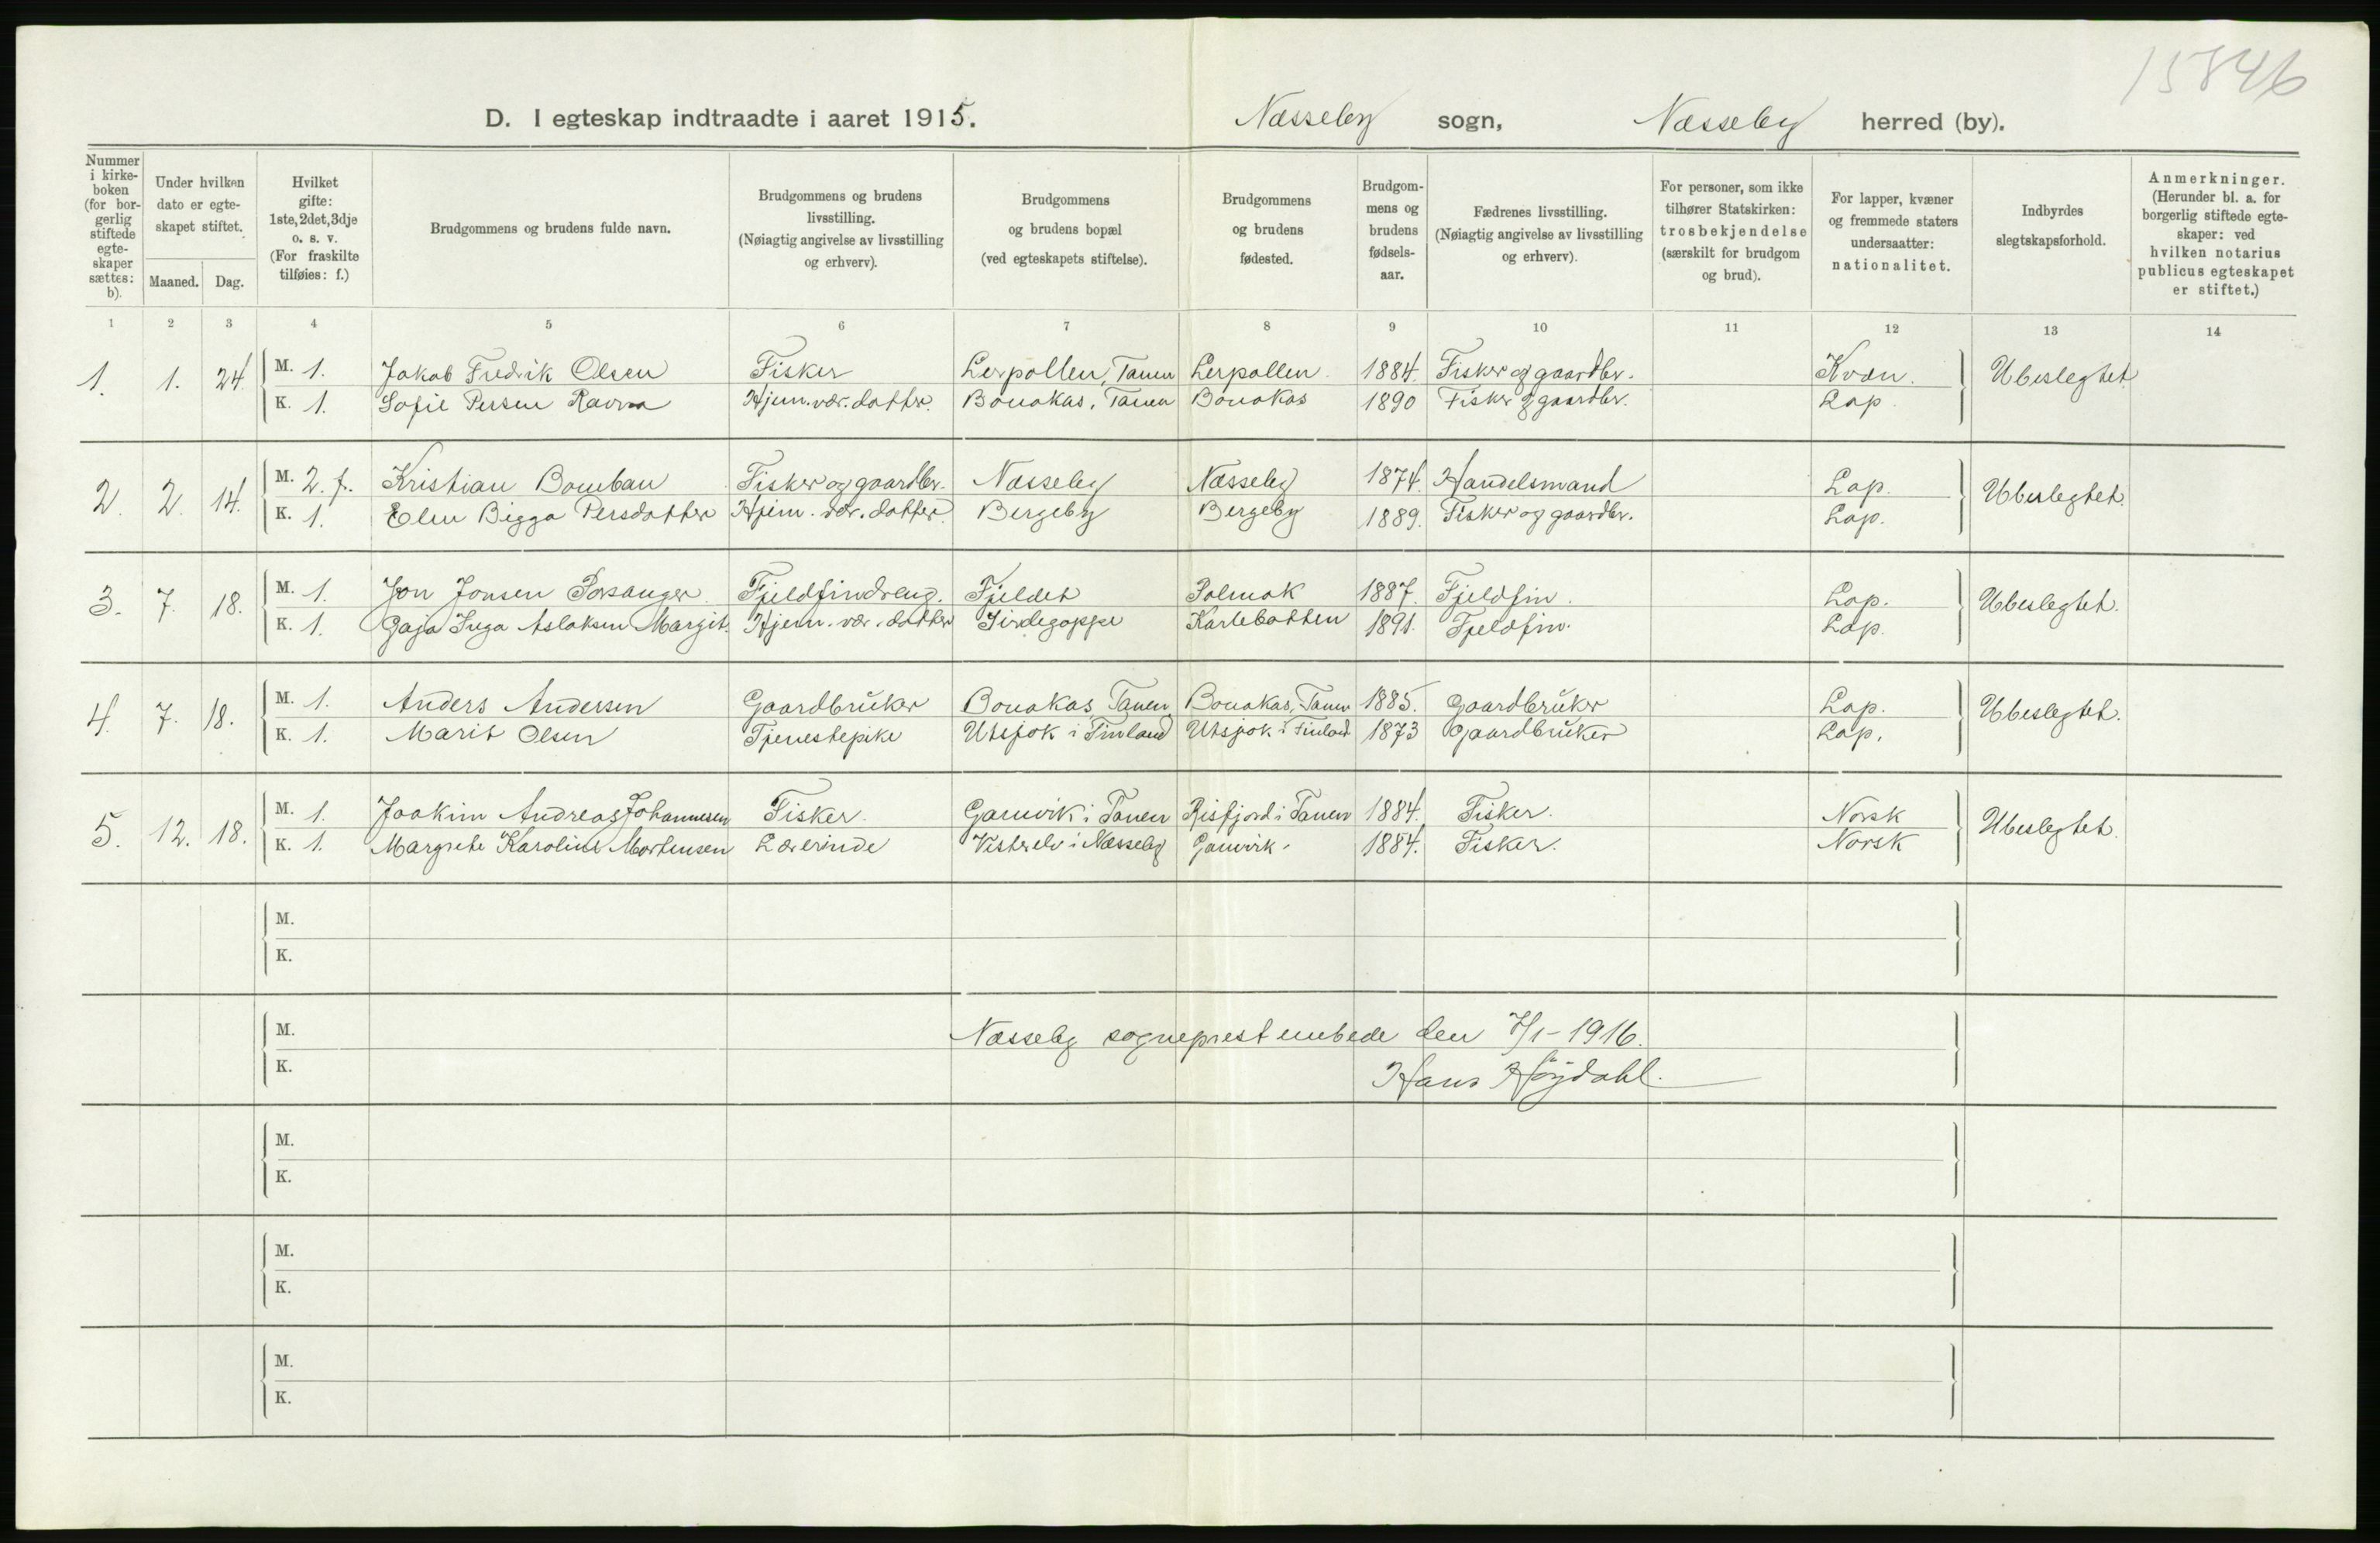 15846
D. I egteskap indtraadte i aaret 1915. Næsseby sogn, Næsseby herred (by).
Nummer i kirke- boken (for bor- gerlig stiftede egte- skaper sættes: b).
Under hvilken dato er egte- skapet stiftet. Maaned. Dag.
Hvilket gifte: 1ste, 2det, 3dje o. s. v. (For fraskilte tilføies: f.)
Brudgommens og brudens fulde navn.
Brudgommens og brudens livsstilling. (Nøiagtig angivelse av livsstilling og erhverv).
Brudgommens og brudens bopæl (ved egteskapets stiftelse).
Brudgommens og brudens fødested.
Brudgom- mens og brudens fødsels- aar.
Fædrenes livsstilling. (Nøiagtig angivelse av livsstilling og erhverv).
For personer, som ikke tilhører Statskirken: trosbekjendelse (særskilt for brudgom og brud).
For lapper, kvæner og fremmede staters undersaatter: nationalitet.
Indbyrdes slegtskapsforhold.
Anmerkninger. (Herunder bl. a. for borgerlig stiftede egte- skaper: ved hvilken notarius publicus egteskapet er stiftet.)
1 2 3 4 5 6 7 8 9 10 11 12 13 14
1. 1. 24. M. 1. Jakob Fredrik Olsen Fisker Lerpollen, Tanen Lerpollen. 1884. Fisker og gaardbr. Kvæn. Ubeslegtet
K. 1. Sofie Persen Ravna Hjem. vær. datter. Bonakas, Tanen Bonakas 1890 Fisker og gaardbr. Lap
2. 2. 14. M. 2. f. Kristian Bomban Fisker og gaardbr. Næsseby Næsseby 1874. Handelsmand Lap. Ubeslegtet.
K. 1. Elen Bigga Persdatter Hjem. vær. datter. Bergeby Bergeby 1889. Fisker og gaardbr. Lap.
3. 7. 18. M. 1. Jon Jonsen Porsanger. Fjeldfindreng. Fjeldet Polmak 1887. Fjeldfin. Lap. Ubeslegtet.
K. 1. Gaja Inga Aslaksen Margit. Hjem. vær. datter Sirdegoppe Karlebotten 1891. Fjeldfin. Lap.
4. 7. 18. M. 1. Anders Andersen Gaardbruker Bonakas, Tanen Bonakas, Tanen 1885. Gaardbruker Lap. Ubeslegtet.
K. 1. Marit Olsen Tjenestepike Utsjok i Finland Utsjok i Finland 1873 Gaardbruker Lap.
5. 12. 18. M. 1. Joakim Andreas Johannesen Fisker. Gamvik i Tanen Risfjord i Tanen 1884. Fisker. Norsk Ubeslegtet.
K. 1. Margrete Karoline Mortensen Lærerinde Vesterelv i Næsseby Gamvik. 1884. Fisker. Norsk
M.
K.
M. Næsseby sogneprestembede den 7/1-1916.
K. Hans Høydahl.
M.
K.
M.
K.
M.
K.